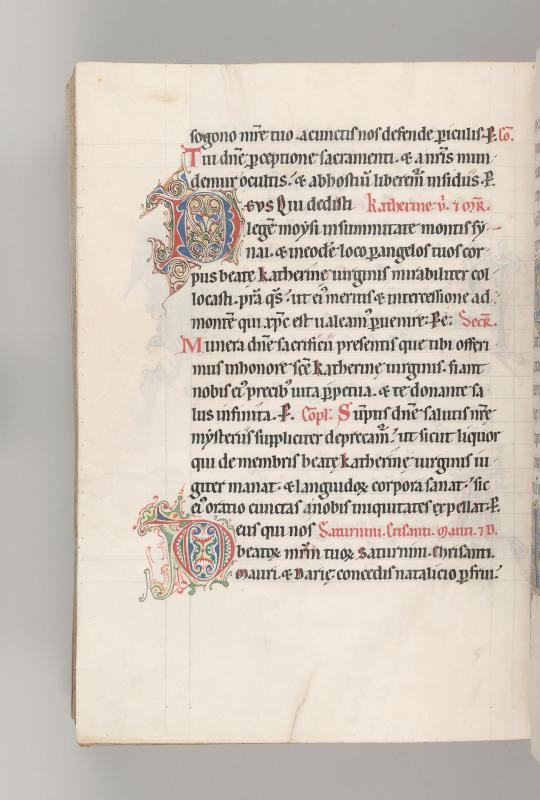 sogono nr̄e tuo. a cunctis nos defende ꝑiculis. P. Cō.
Tui dn̄e ꝑceptione sacramenti. & a nr̄is mun
demur occultis. & ab hostiū liberem̄ insidiis. P.
DEVS Qui dedisti Katherine v̄. 7 mr̄.
legē moysi in summitate montis sy
nai. & in eodē loco ꝑ angelos tuos cor
pus beatę katherinę uirginis mirabiliter col
locasti. pr̄a qs̄. ut ei' meritis & intercessione ad
montē qui xp̄c est ualeam' ꝑuenire. Pe. Secr̄.
Munera dn̄e sacrificii presentis que tibi offeri
mus in honore scē̄ katherinę uirginis. fiant
nobis ei' precib' uita ꝑpetua. & te donante sa
lus infinita. P. Cōpl. Sūptis dn̄e salutis nr̄e
mysteriis suppliciter deprecam̄. ut sicut liquor
qui de membris beatę katherinę uirginis iu
giter manat. & languidoꝝ corpora sanat. sic
ei' oratio cunctas a nobis iniquitates expellat. P.
Deus qui nos Saturnini. Crisanti. Mauri. 7 D.
beatoꝝ mr̄m tuoꝝ Saturnini. Chrisanti.
Mauri. & Darię concedis natalicio ꝑfrui.